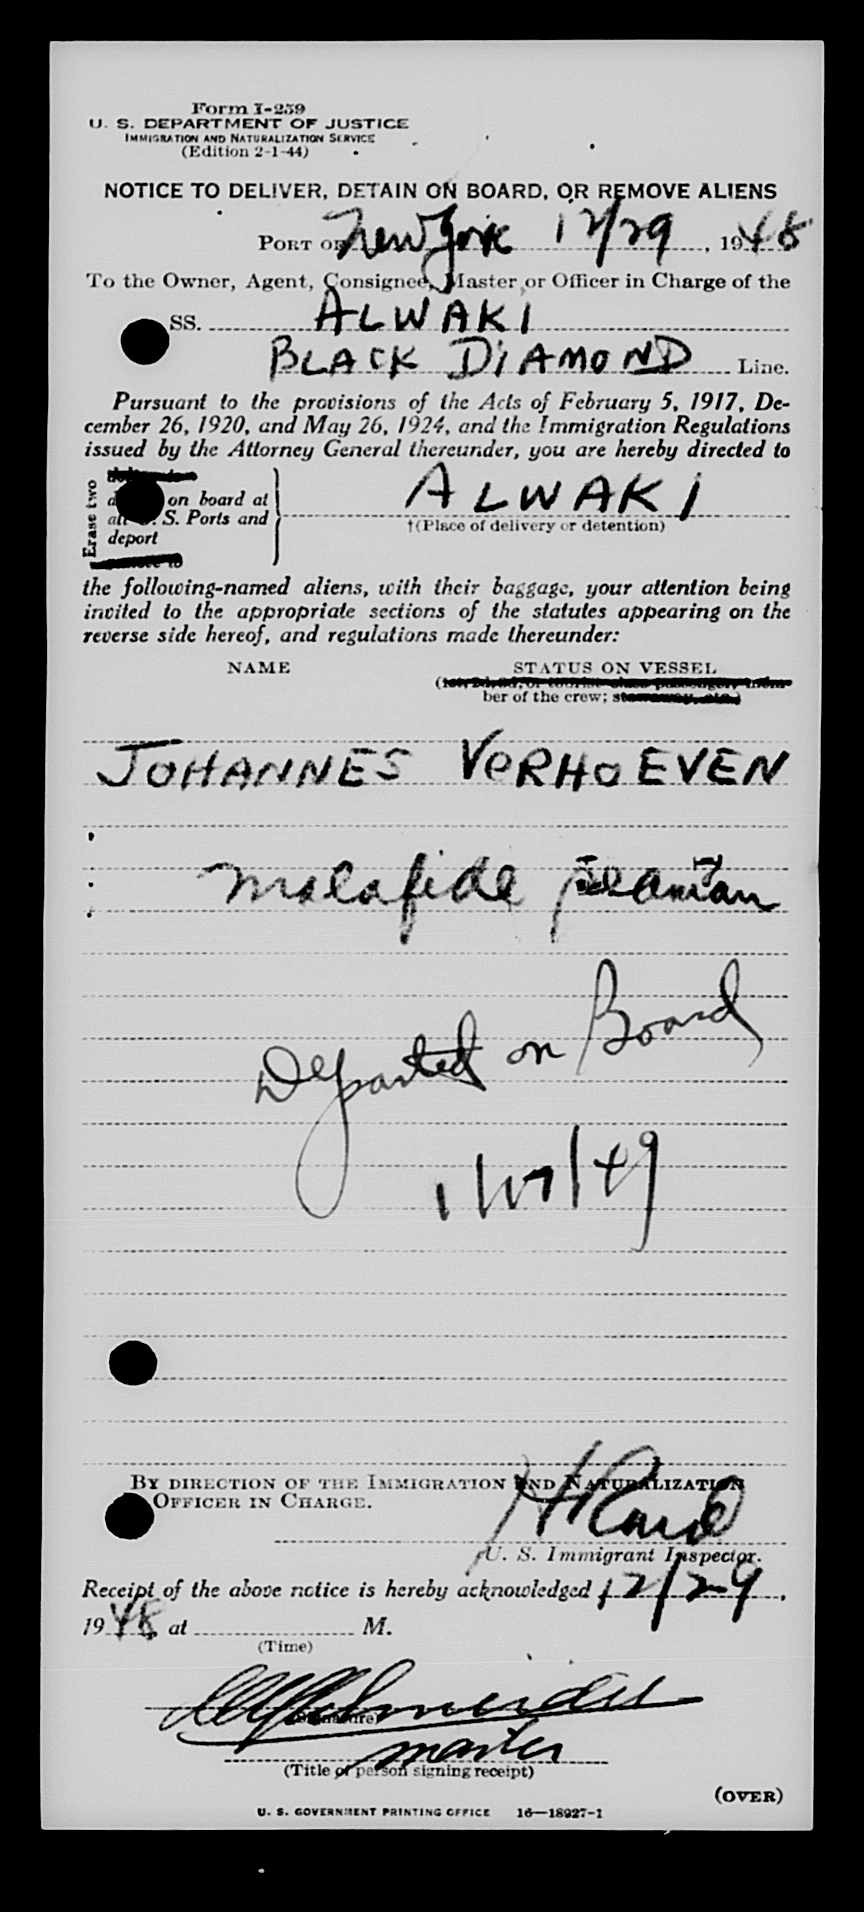 Form I-259
U. S. DEPARTMENT OF JUSTICE
IMMIGRATION AND NATURALIZATION SERVICE
(Edition 2-1-44)
NOTICE TO DELIVER, DETAIN ON BOARD, OR REMOVE ALIENS
PORT OF New York 12/29, 1948
To the Owner, Agent, Consignee, Master or Officer in Charge of the
SS. ALWAKI
BLACK DIAMOND Line.
Pursuant to the provisions of the Acts of February 5, 1917, De-
cember 26, 1920, and May 26, 1924, and the Immigration Regulations
issued by the Attorney General thereunder, you are hereby directed to
Erase two
on board at ALWAKI
S. Ports and †(Place of delivery or detention)
deport
the following-named aliens, with their baggage, your attention being
invited to the appropriate sections of the statutes appearing on the
reverse side hereof, and regulations made thereunder:
NAME STATUS ON VESSEL
ber of the crew;
JOHANNES VERHOEVEN
Malafide seaman
Departed on Board
1/17/49
BY DIRECTION OF THE IMMIGRATION AND NATURALIZATION
OFFICER IN CHARGE.
U. S. Immigrant Inspector.
Receipt of the above notice is hereby acknowledged 12/29,
1948, at M.
(Time)
(Signature)
master
(Title of person signing receipt)
(OVER)
U. S. GOVERNMENT PRINTING OFFICE 16—18927-1